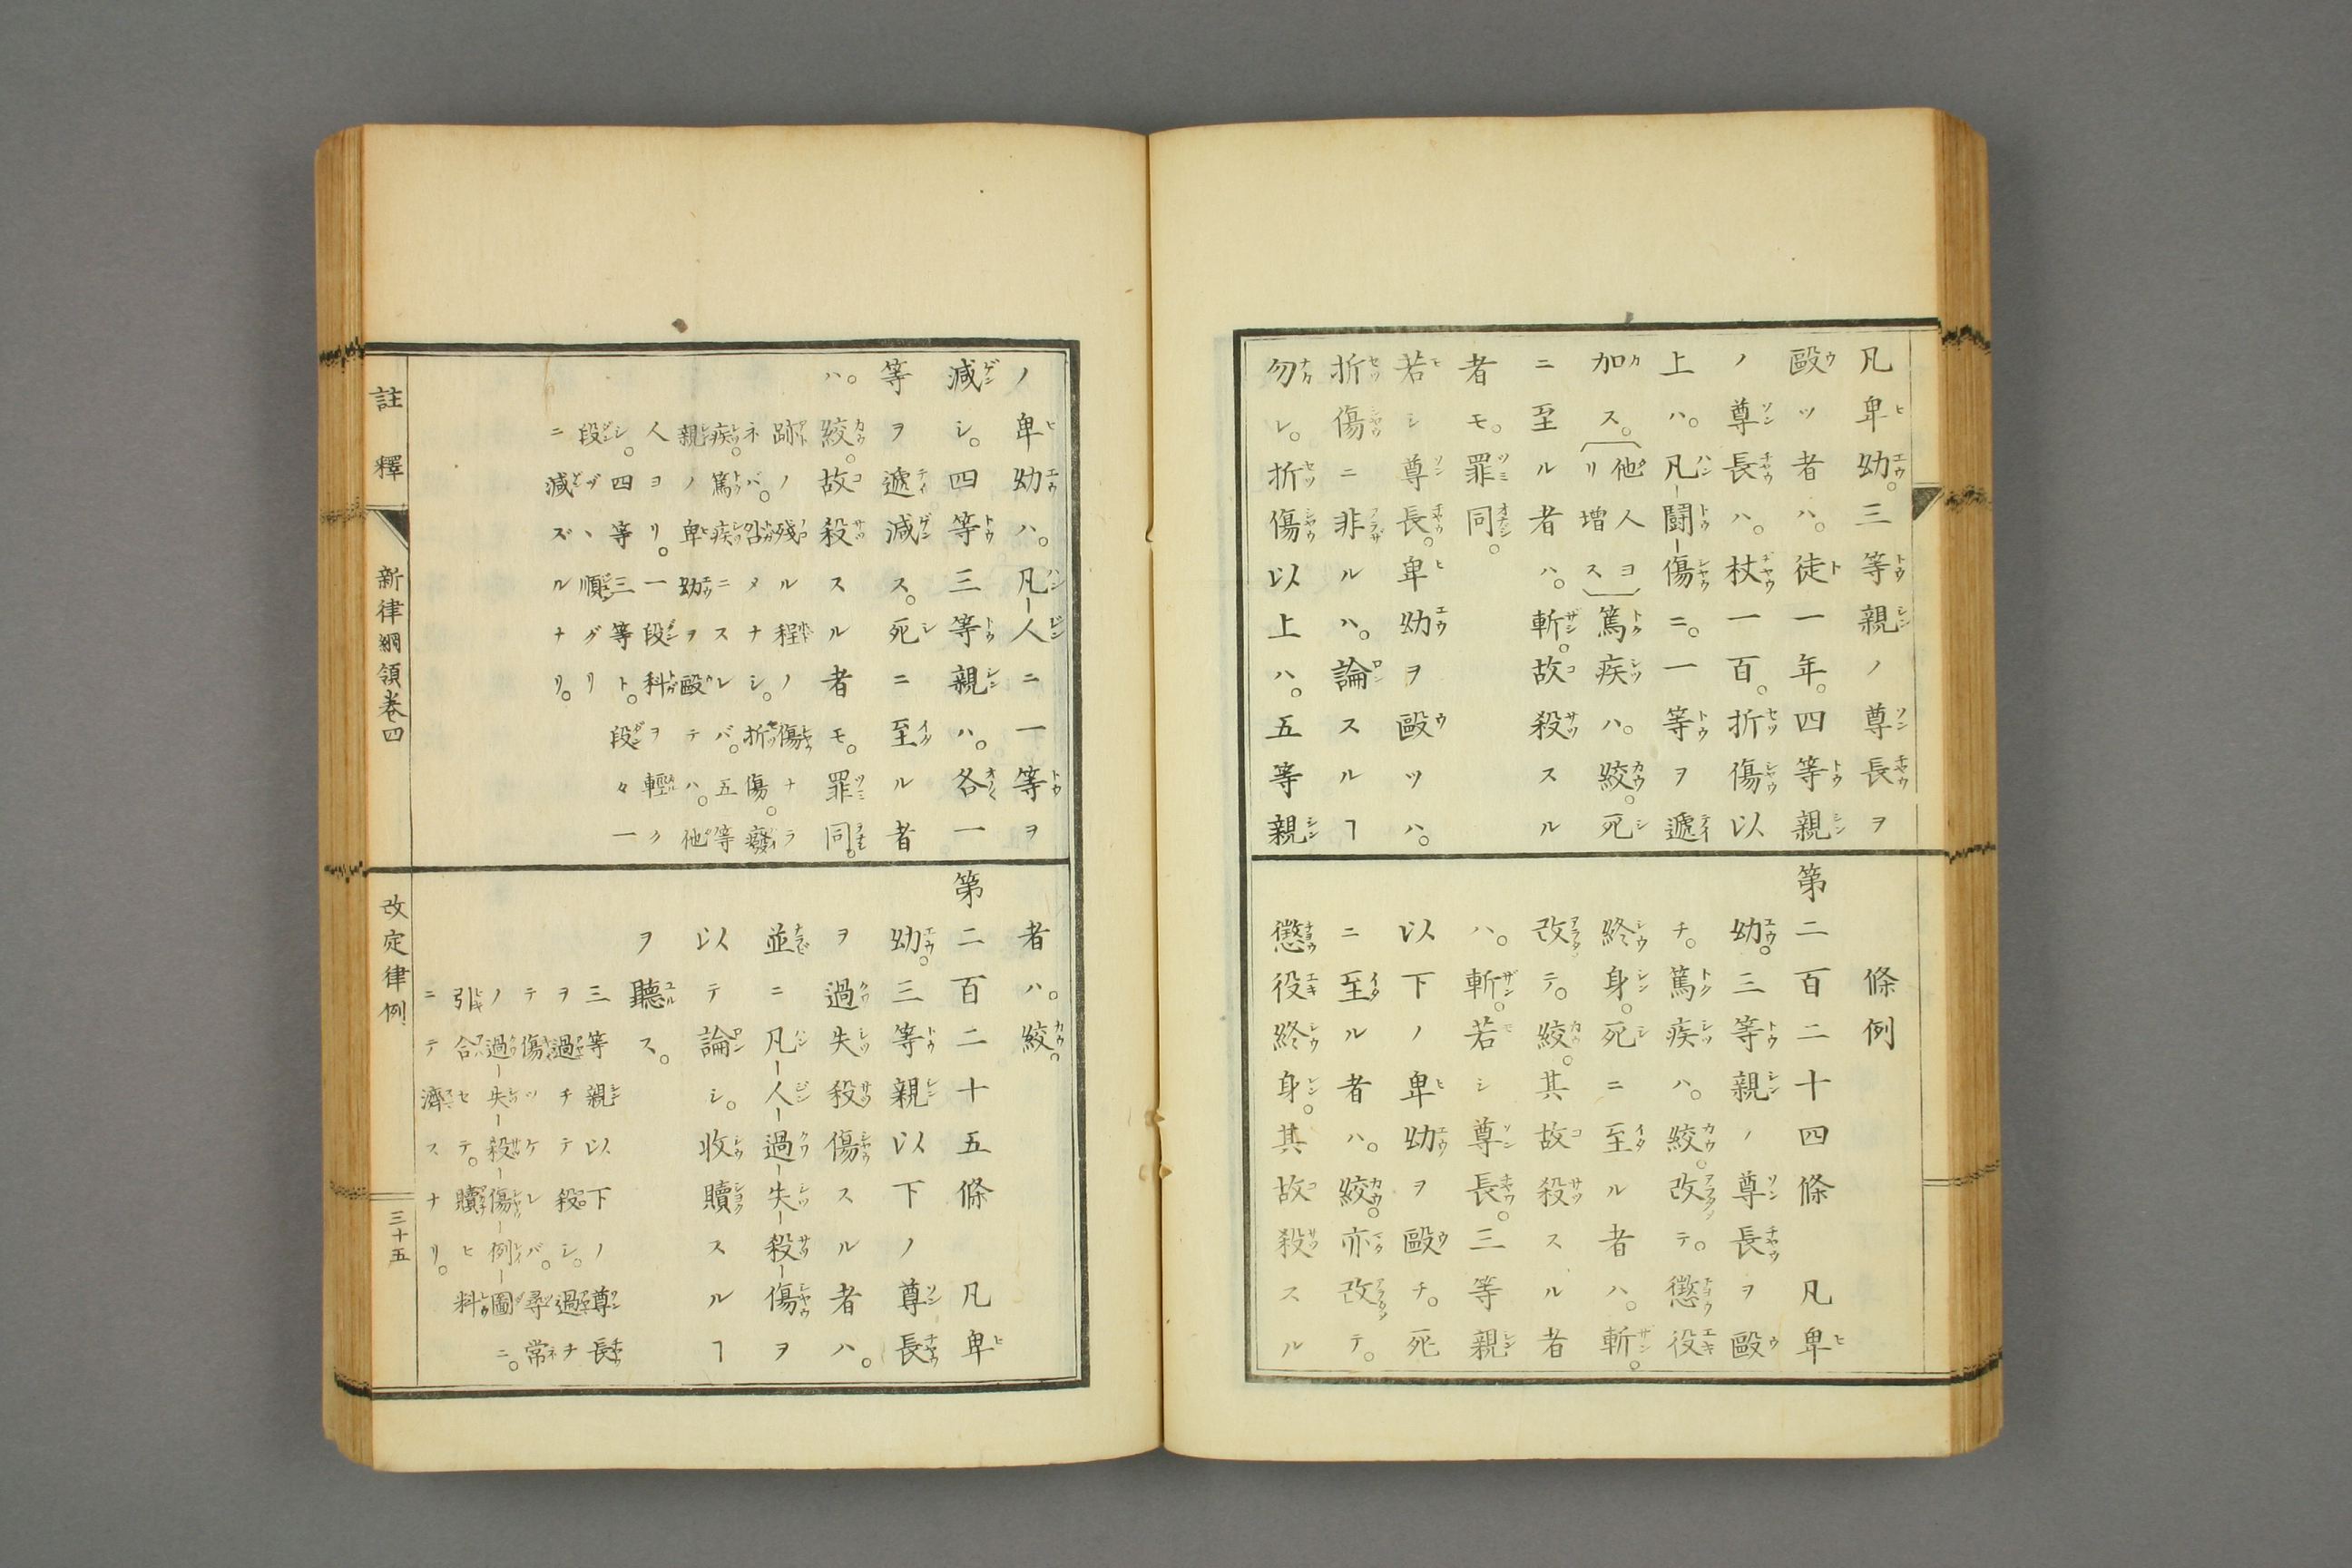 凡卑幼。三等親ノ尊長ヲ
毆ツ者ハ。徒一年。四等親
ノ尊長ハ。杖一百。折傷以
上ハ。凡闘傷ニ。一等ヲ遞
加ス。〔他人ヨリ増ス〕篤疾ハ。絞。死
ニ至ル者ハ。斬。故殺スル
者モ。罪同。
若シ尊長。卑幼ヲ毆ツハ。
折傷ニ非ルハ。論スルヿ
勿レ。折傷以上ハ。五等親
條例
第二百二十四條 凡卑
幼。三等親ノ尊長ヲ毆
チ。篤疾ハ。絞。改テ。懲役
終身。死ニ至ル者ハ。斬。
改テ。絞。其故殺スル者
ハ。斬。若シ尊長。三等親
以下ノ卑幼ヲ毆チ。死
ニ至ル者ハ。絞。亦改テ。
懲役終身。其故殺スル
ノ卑幼ハ。凡人ニ一等ヲ
減シ。四等三等親ハ。各一
等ヲ遞減ス。死ニ至ル者
ハ。絞。故殺スル者モ。罪同。
跡ノ残ル程ノ傷ナラ
ネバ。咎メナシ。折傷。癈
疾。篤疾ニスレバ。五等
親ノ卑幼ヲ毆テハ。他
人ヨリ。一段科ヲ輕ク
シ。四等三等ト。段々一
段ヅヽ順グリ
ニ減ズルナリ。
者ハ。絞。
第二百二十五條 凡卑
幼。三等親以下ノ尊長
ヲ過失殺傷スル者ハ。
並ニ凡人過失殺傷ヲ
以テ論シ。收贖スルヿ
ヲ聽ス。
三等親以下ノ尊長
ヲ過チテ殺シ。過チ
テ傷ツケレバ。尋常
ノ過失殺傷例圖ニ。
引合セテ。贖ヒ料
ニテ濟スナリ。
註釋 新律綱領卷四 改定律例 三十五